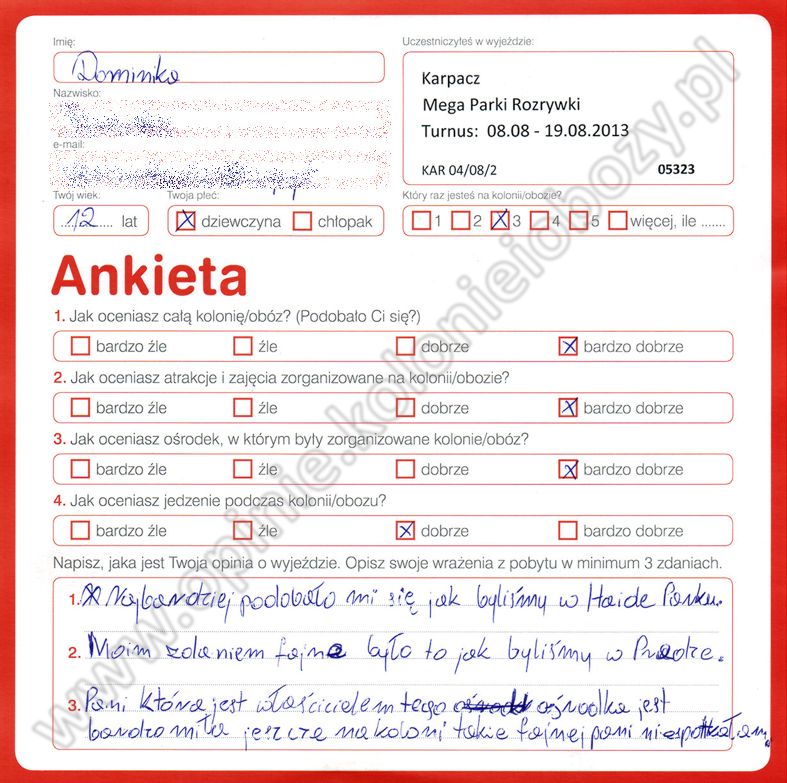 Imię:
Dominika
Uczestniczyłeś w wyjeździe:
Karpacz
Mega Parki Rozrywki
Turnus: 08.08 - 19.08.2013
KAR 04/08/2 05323
Nazwisko:
e-mail:
Twój wiek:
12 lat
Twoja płeć:
dziewczyna chłopak
Który raz jesteś na kolonii/obozie?
1 2 3 4 5 więcej, ile .......
Ankieta
1. Jak oceniasz całą kolonię/obóz? (Podobało Ci się?)
bardzo źle źle dobrze bardzo dobrze
2. Jak oceniasz atrakcje i zajęcia zorganizowane na kolonii/obozie?
bardzo źle źle dobrze bardzo dobrze
3. Jak oceniasz ośrodek, w którym były zorganizowane kolonie/obóz?
bardzo źle źle dobrze bardzo dobrze
4. Jak oceniasz jedzenie podczas kolonii/obozu?
bardzo źle źle dobrze bardzo dobrze
Napisz, jaka jest Twoja opinia o wyjeździe. Opisz swoje wrażenia z pobytu w minimum 3 zdaniach.
1. Najbardziej podobało mi się jak byliśmy w Haide Parku.
2. Moim zdaniem fajne było to jak byliśmy w Pradze.
3. Pani która jest właścicielem tego ośrodka jest
bardzo miła jeszcze na koloni takie fajnej pani niespotkałam.
www.opinie.kolonieiobozy.pl